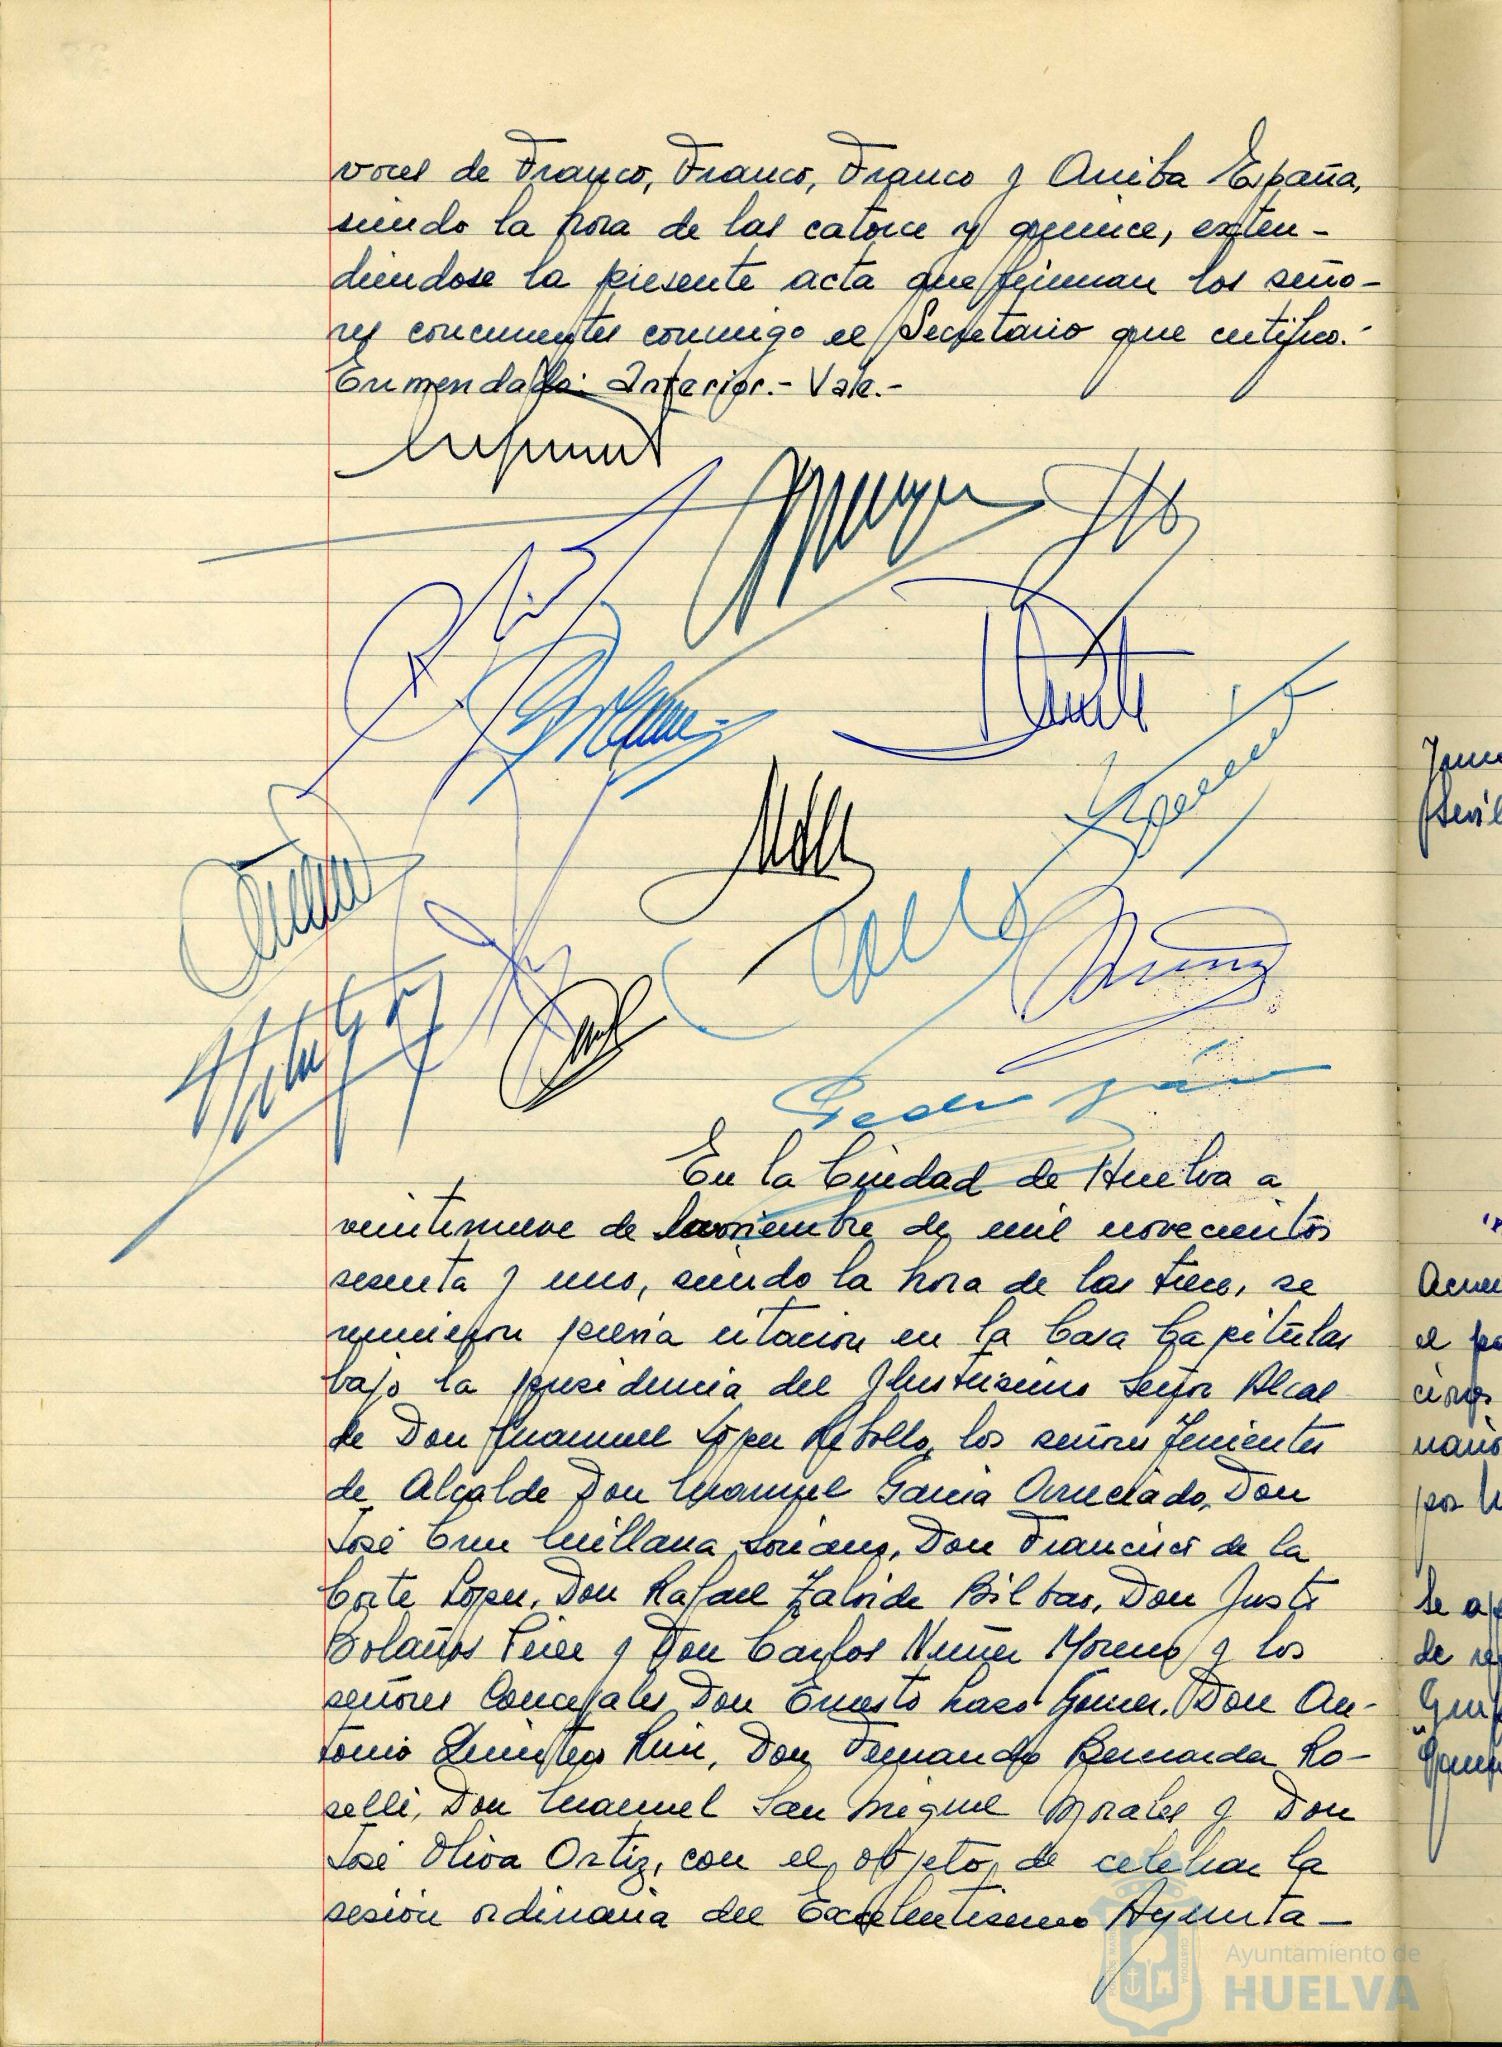 voces de Franco, Franco, Franco y Arriba España,
siendo la hora de las catorce y quince, exten-
diéndose la presente acta que firman los seño-
res concurrentes conmigo el Secretario que certifico.-
Enmendado: Inferior.- Vale.-
En la Ciudad de Huelva a
veintinueve de Noviembre de mil novecientos
sesenta y uno, siendo la hora de las trece, se
reunieron previa citación en la Casa Capitular
bajo la presidencia del Ilustrísimo Señor Alcal
de Don Manuel López Rebollo, los señores Tenientes
de Alcalde Don Manuel García Arruciado, Don
José Cruz Millana Soriano, Don Francisco de la
Corte López, Don Rafael Zalvide Bilbao, Don Justo
Bolaños Pérez y Don Carlos Núñez Moreno y los
señores Concejales Don Ernesto Lazo Gómez, Don An-
tonio Quintero Ruiz, Don Fernando Bernarda Ro-
selli, Don Manuel San Miguel Morales y Don
José Oliva Ortiz, con el objeto de celebrar la
sesión ordinaria del Excelentísimo Ayunta-
Ayuntamiento de
HUELVA